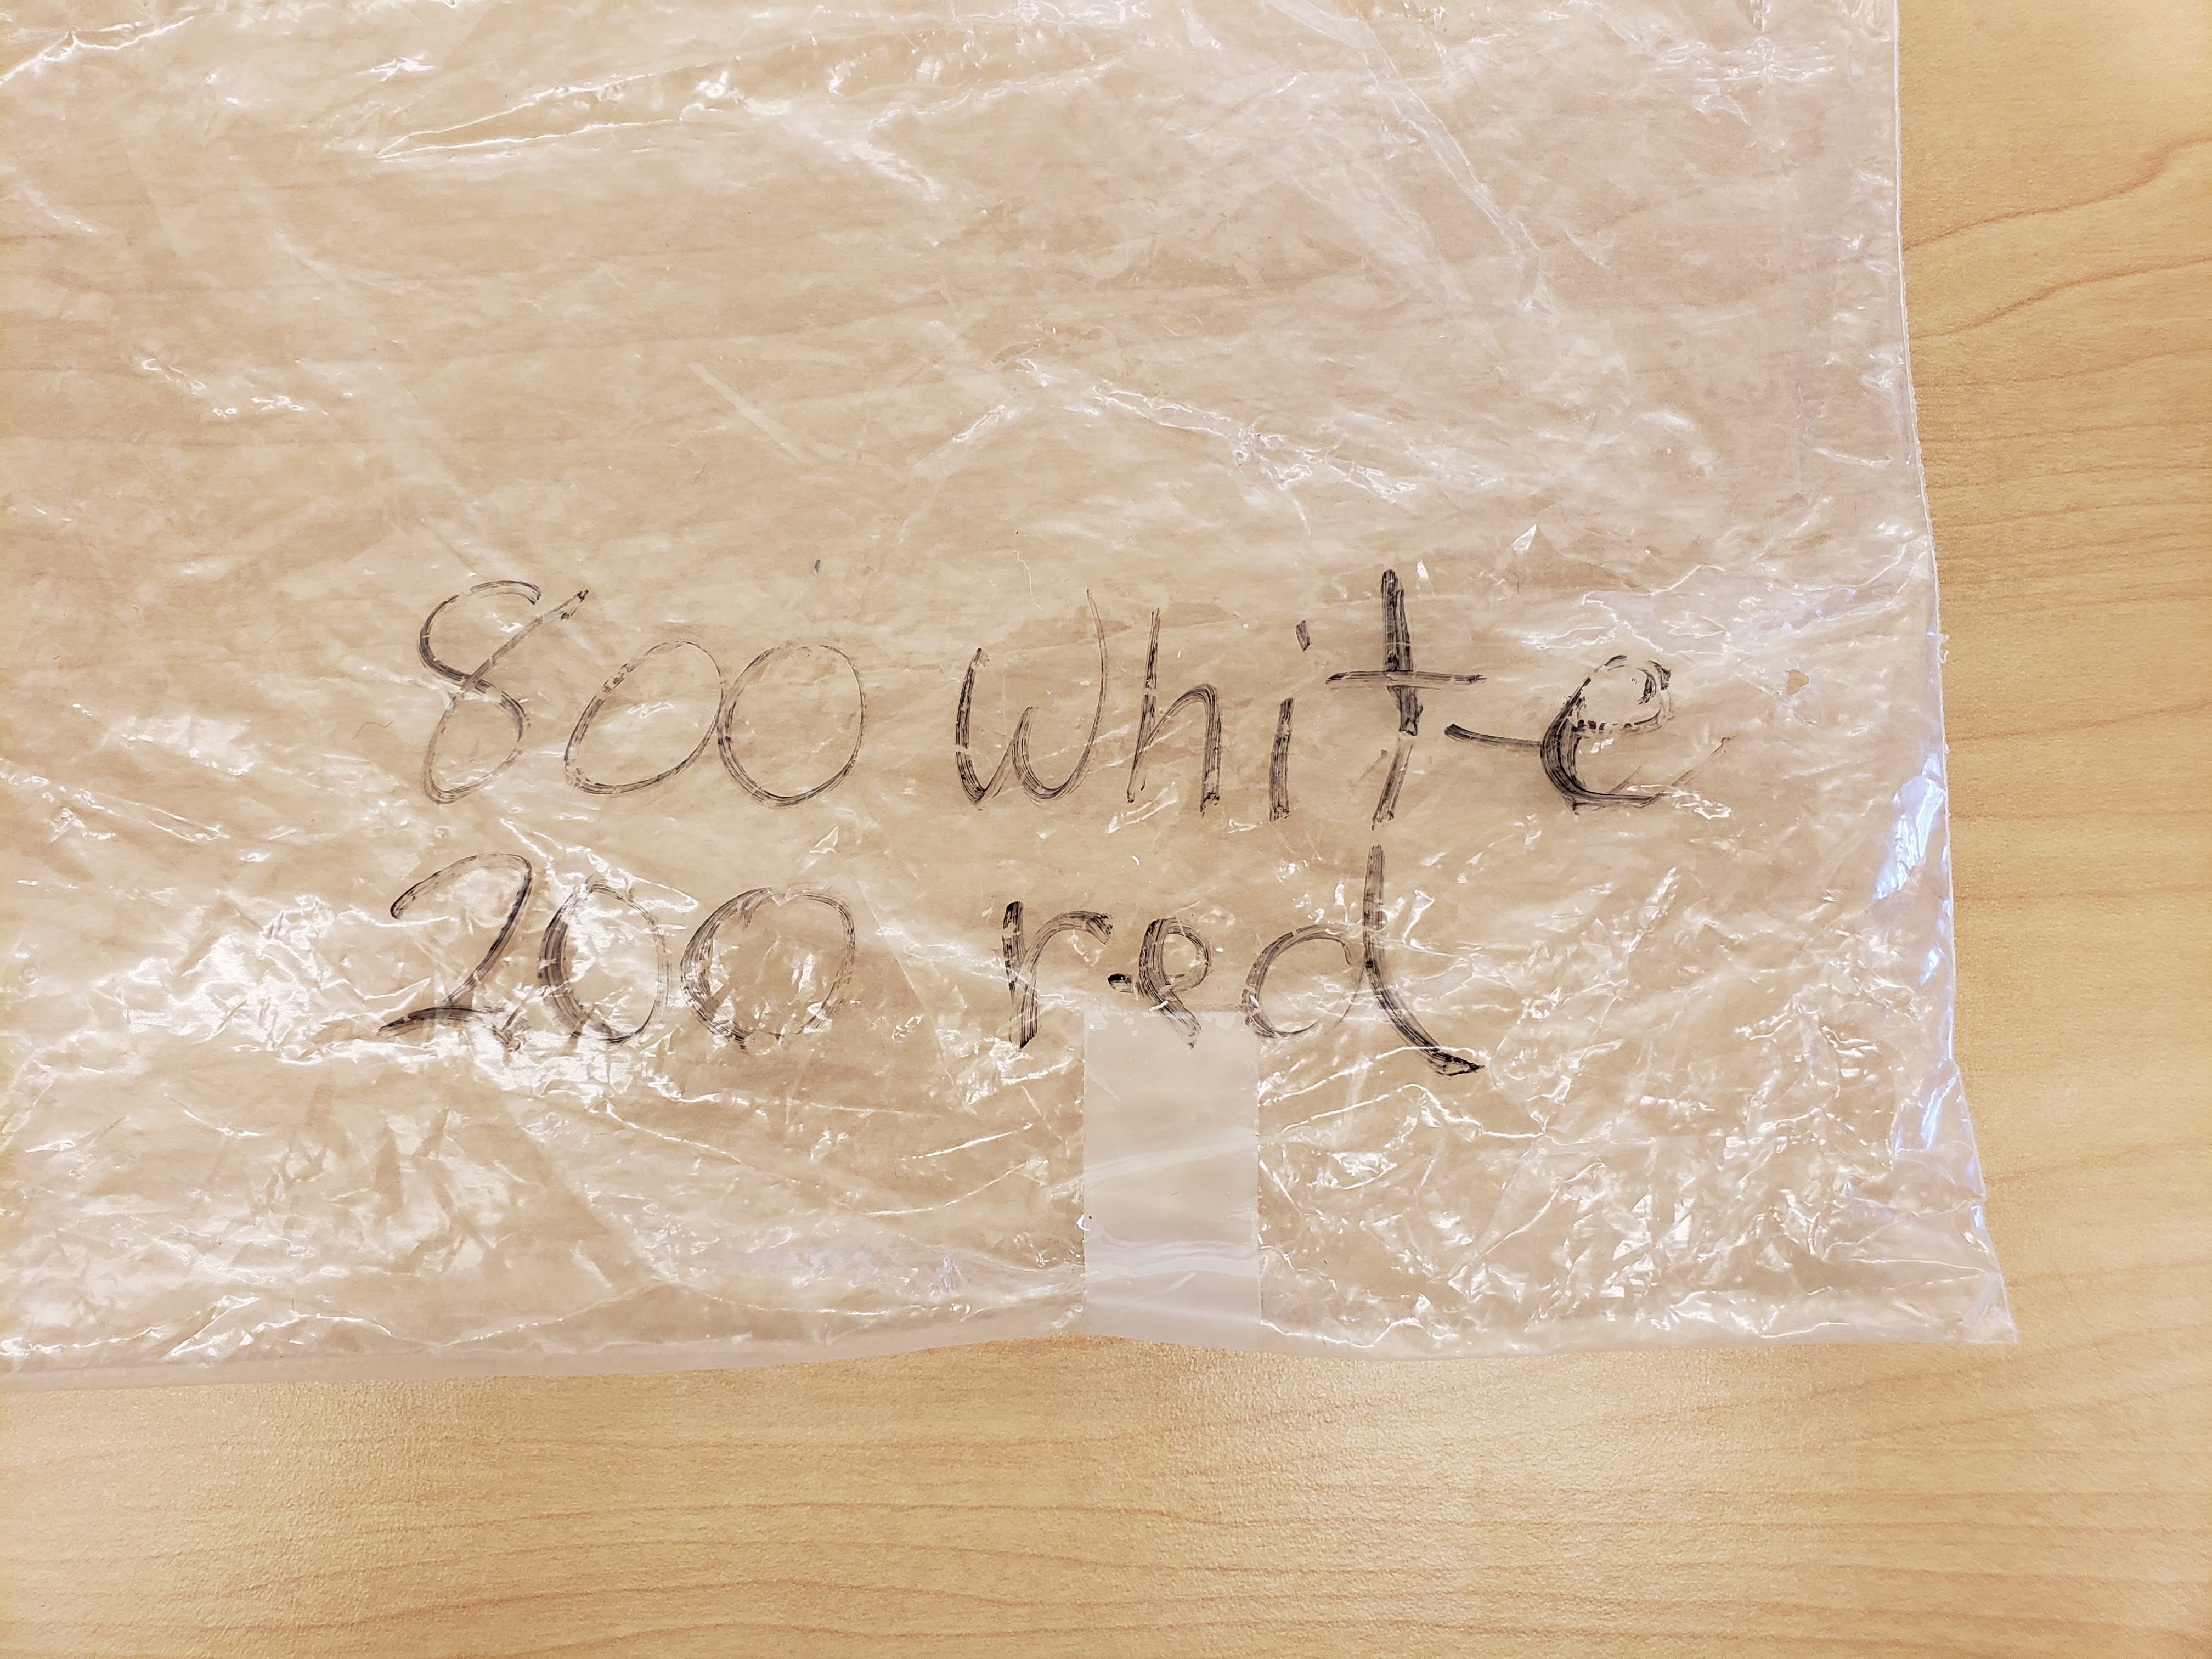 800 White
200 red